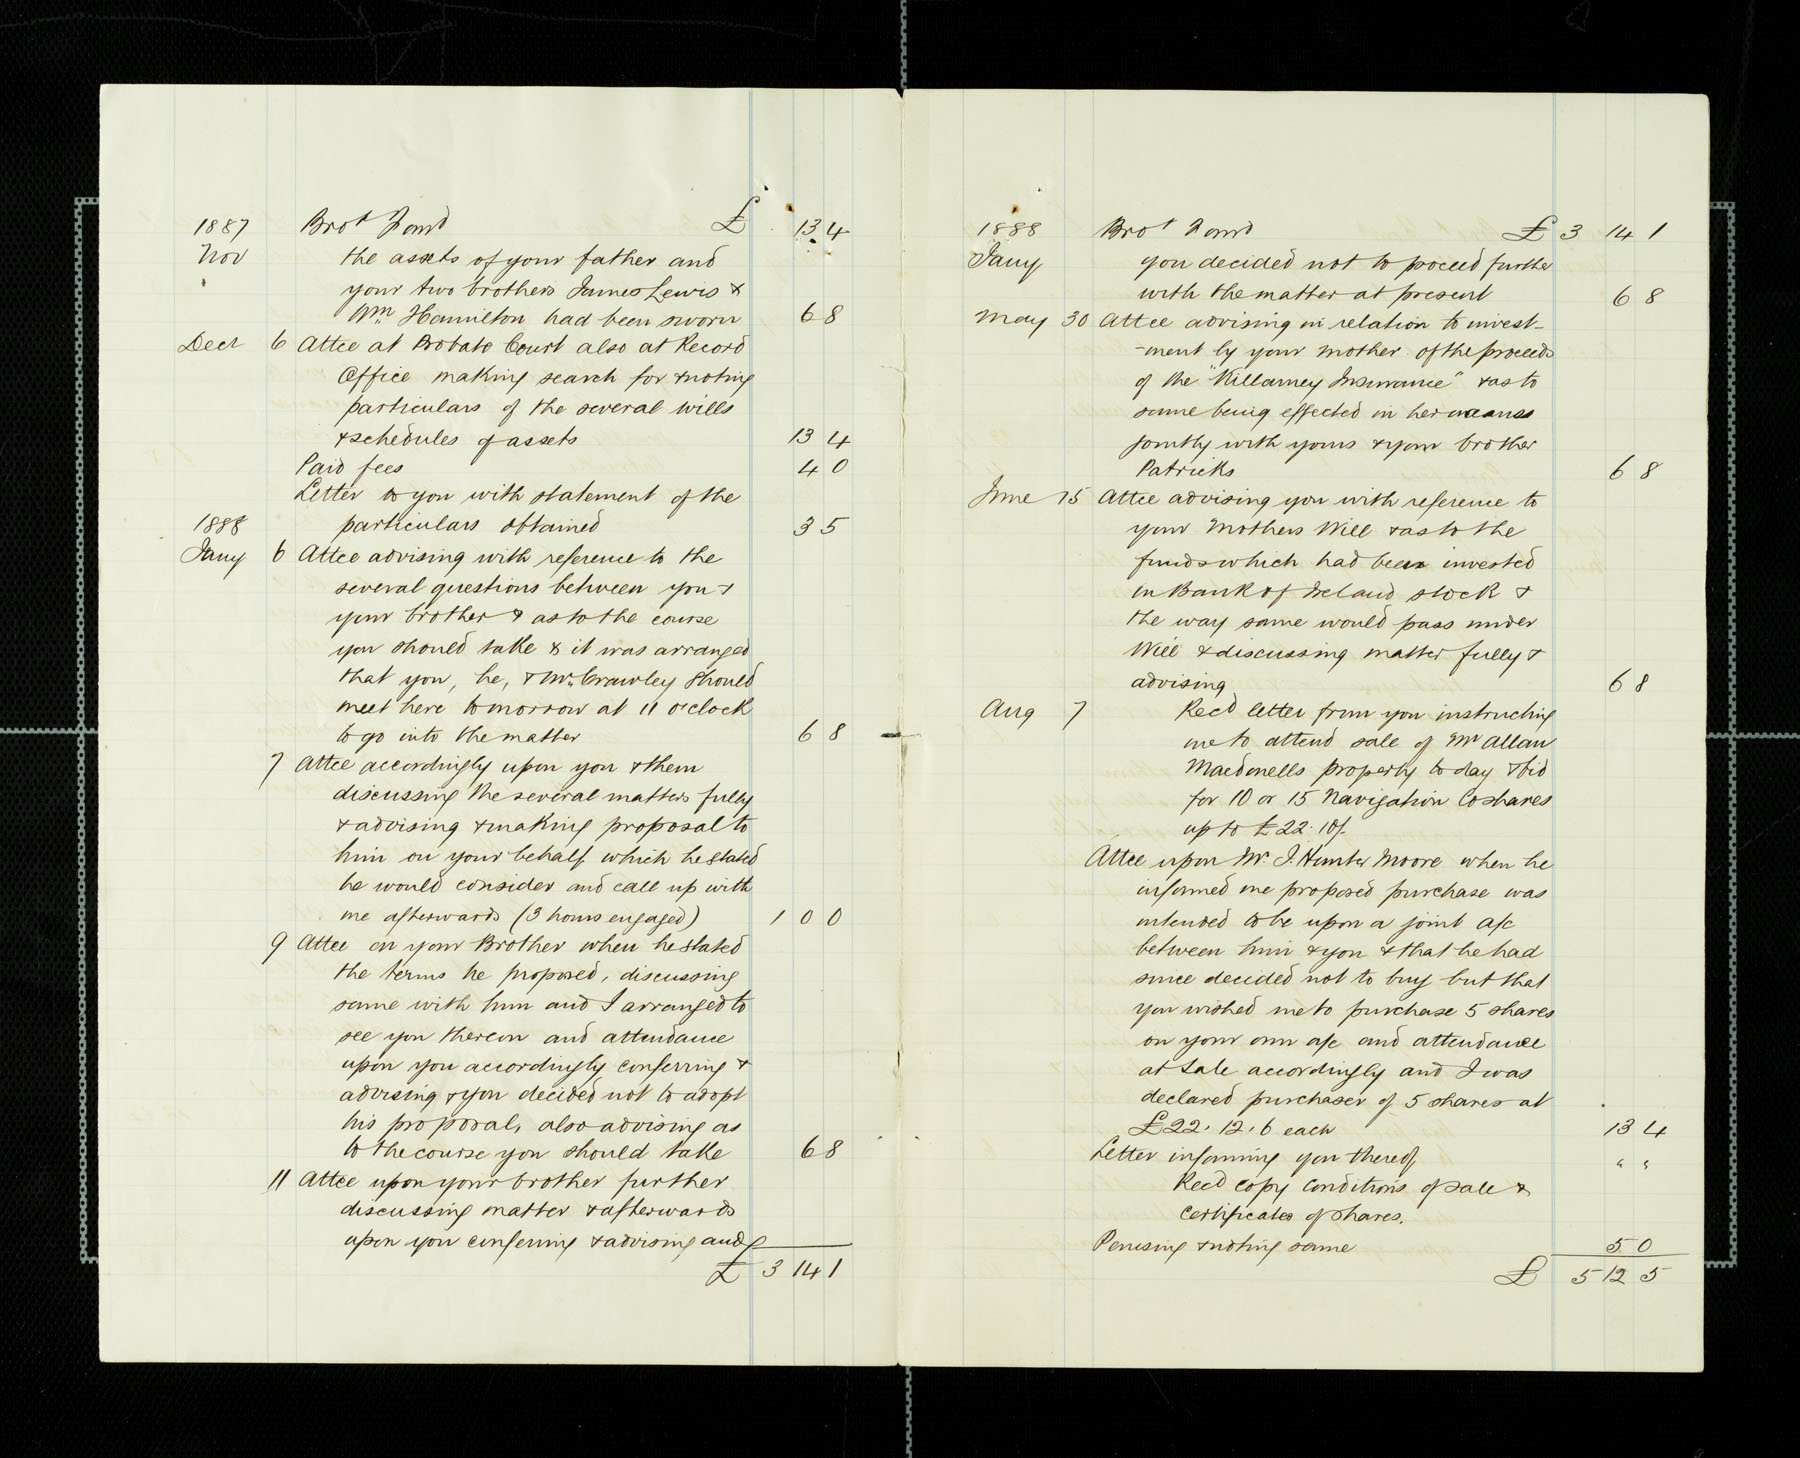 1887 Brot Forwd £ 13 4
Nov the assets of your father and
your two brothers James Lewis &
Wm Hamilton had been sworn 6 8
Decr 6 Attce at Probate Court also at Record
Office making search for & noting
particulars of the several wills
& schedules of assets 13 4
Paid fees 4 0
Letter to you with statement of the
1888 particulars obtained 3 5
Jany 6 Attce advising with reference to the
several questions between you &
your brother & as to the course
you should take & it was arranged
that you, he, & Mr. Crawley should
meet here tomorrow at 11 o'clock
to go into the matter 6 8
7 Attce accordingly upon you & them
discussing the several matters fully
& advising & making proposal to
him on your behalf which he stated
he would consider and call up with
me afterwards (3 hours engaged) 1 0 0
9 Attce on your Brother when he stated
the terms he proposed, discussing
same with him and I arranged to
see you thereon and attendance
upon you accordingly conferring &
advising & you decided not to adopt
his proposal, also advising as
to the course you should take 6 8
11 Attce upon your brother further
discussing matter & afterwards
upon you conferring & advising and
£ 3 14 1
1888 Brot Forwd £ 3 14 1
Jany you decided not to proceed further
with the matter at present 6 8
May 30 Attce advising in relation to invest-
-ment by your mother of the proceeds
of the "Killarney Insurance" & as to
same being effected in her
jointly with yours & your brother
Patricks 6 8
June 15 Attce advising you with reference to
your Mothers Will & as to the
funds which had been invested
in Bank of Ireland stock &
the way same would pass under
Will & discussing matter fully &
advising 6 8
Aug 7 Recd letter from you instructing
me to attend sale of Mr Allan
Macdonells property to day & bid
for 10 or 15 Navigation Co shares
up to £22. 10/.
Attce upon Mr. J. Hunter Moore when he
informed me proposed purchase was
intended to be upon a joint a/c
between him & you & that he had
since decided not to buy but that
you wished me to purchase 5 shares
on your own a/c and attendance
at Sale accordingly and I was
declared purchaser of 5 shares at
£22. 12. 6 each 13 4
Letter informing you thereof " "
Recd copy conditions of sale &
certificates of shares.
Perusing & noting same 5 0
£ 5 12 5